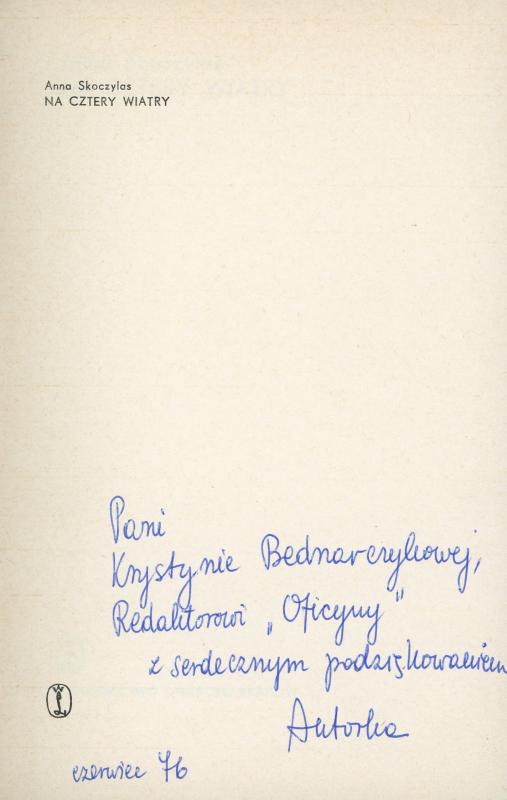 Anna Skoczylas
NA CZTERY WIATRY
Pani
Krystynie Bednarczykowej,
Redaktorowi „Oficyny”
z serdecznym podziękowaniem
Autorka
czerwiec 76